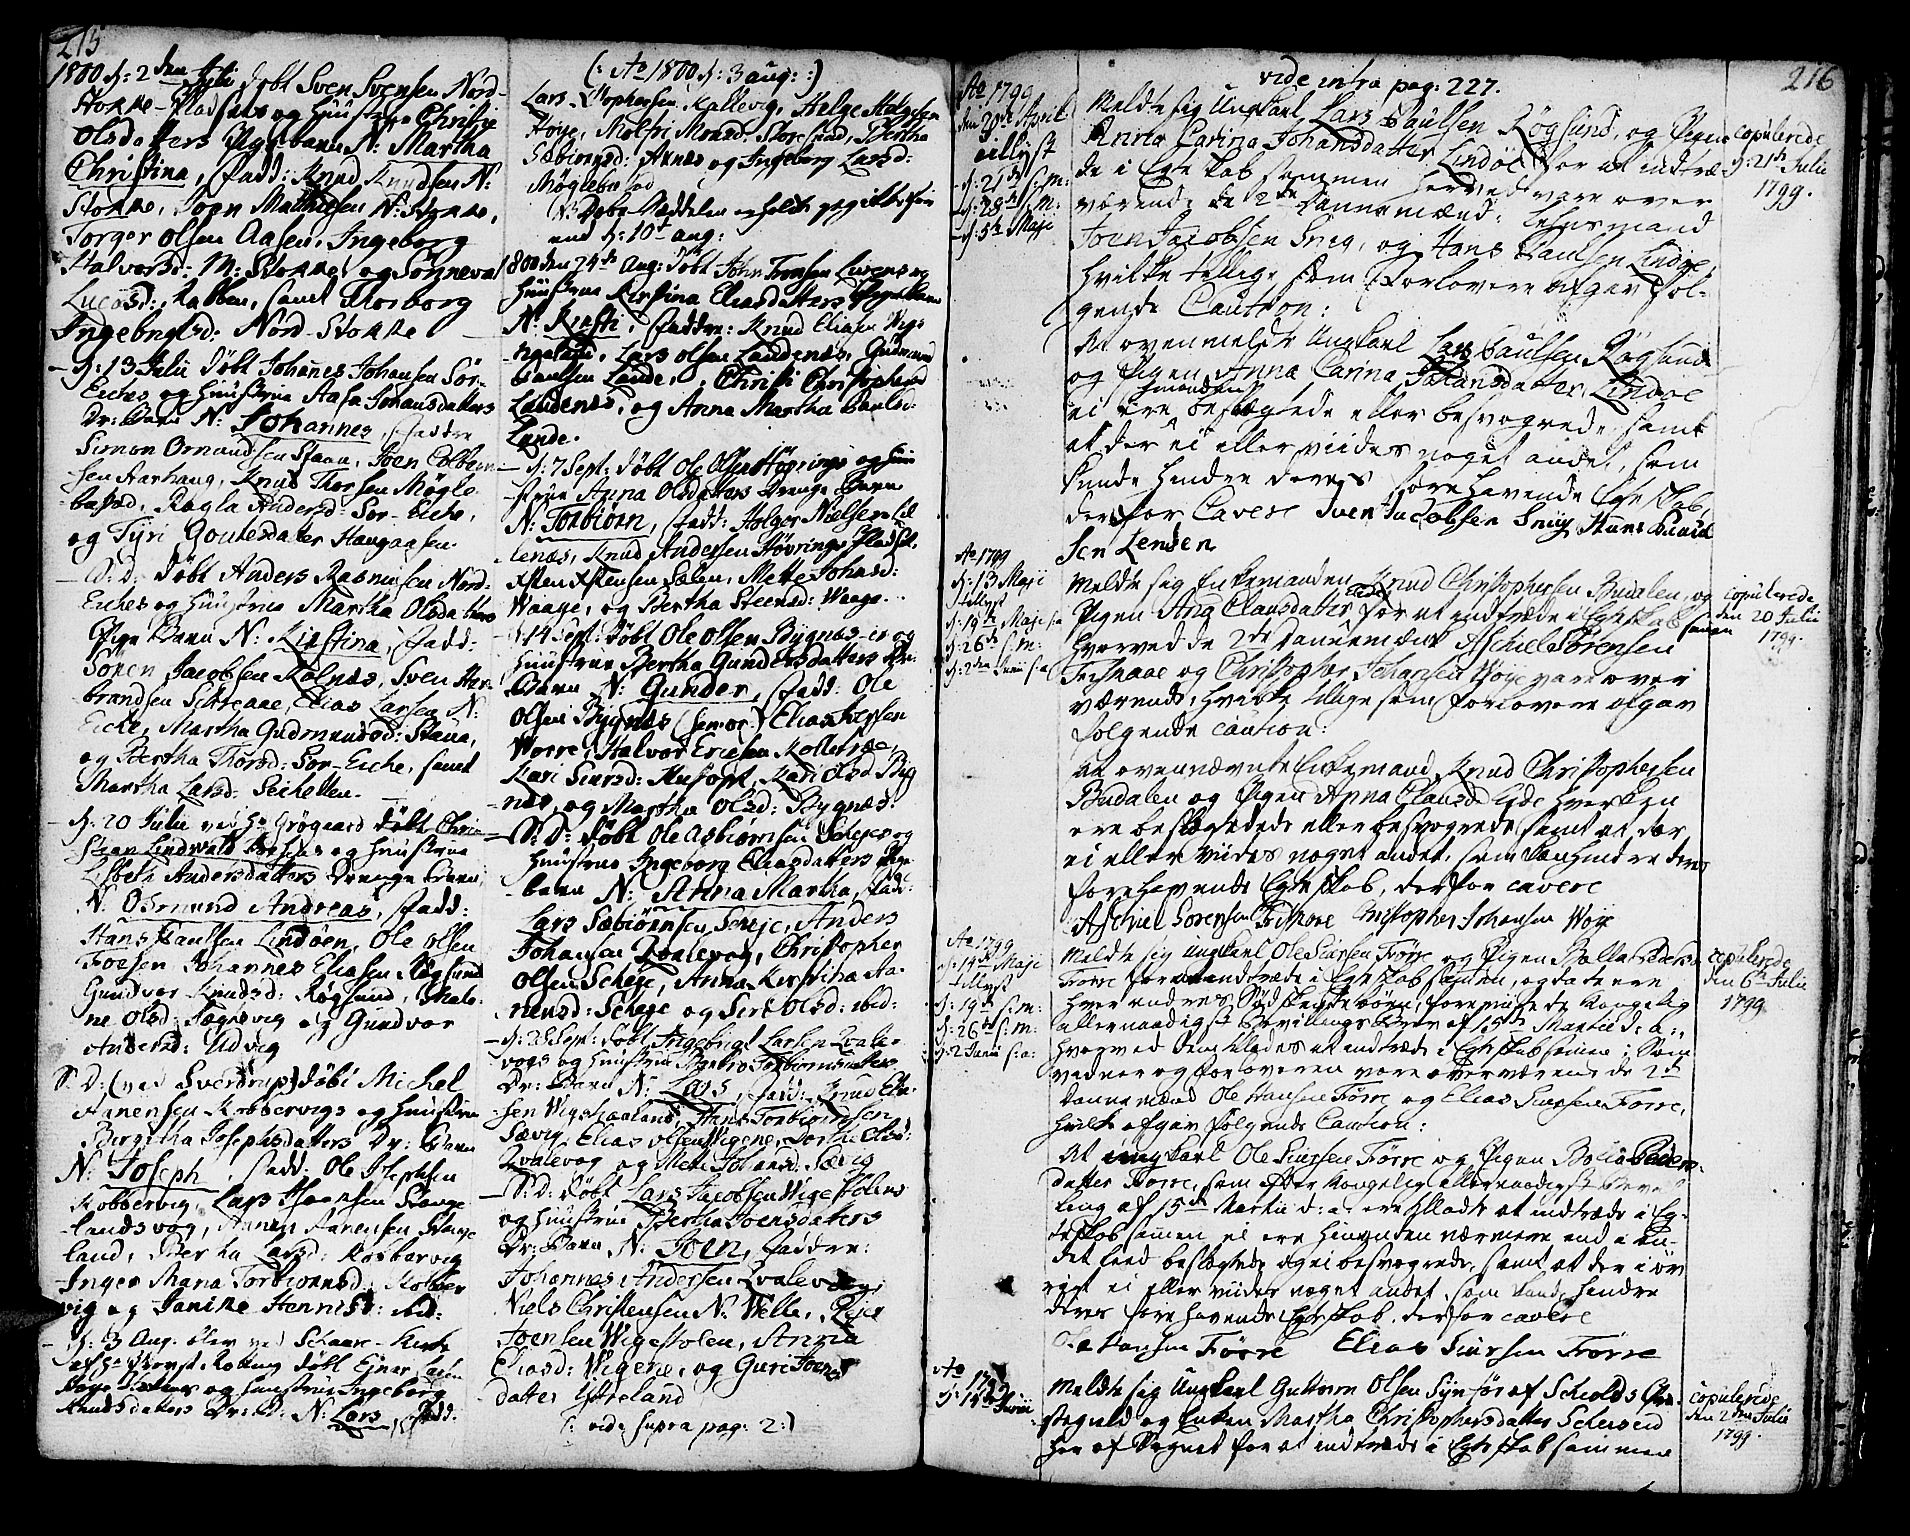 215
1800 d: 2den Julii døbt Sven Svensen Nord-
Stokke-Pladses og Huustrue Christie
Olsdatters Pigebarn N: Martha
Christina, fadd: Knud Knudsen N:
Stokke, Joen Mathiesen N: Stokke,
Torger Olsen Aasen, Ingeborg
Halvorsd: M: Stokke, og Sønneva
Lucasd: Rabben, samt Thorborg
Ingebrigtsd: Nord-Stokke
d: 13 Julii døbt Johanes Johansen Sør-
Eiches og Huustrue Aasa Johansdatters
Dr: Barn N: Johannes, faddre
Simon Ormundsen Stava, Joen Colbeen-
sen Aarhaug, Knud Thorsen Møgle-
bøsød, Ragla Andersd: Sør-Eiche,
og Tyri Goutesdatter Haugaasen.
S: D: døbt Anders Rasmussen Nord-
Eiches og Huustrue Martha Olsdatters
Pige Barn N: Kirstina, fadd:
Sören Jacobsen Kolnæs, Sven Her-
brandsen Elias Larsen N:
Eiche, Martha Gudmundsd: Stava,
og Bertha Thorsd: Sør-Eiche, samt
Martha Larsd:
d: 20 Julii ved Hr Grøgaard døbt Chri-
stian Lindwald og Huustrue
Lisbeth Andersdatters Drenge Barn,
N. Osmund Andreas, fadd:
Hans Paulsen Lindøen, Ole Olsen
Foesen, Johannes Eliasen Røgsund
Gundvor Knudsd: Røgsund, Male-
ne Olsd: Fægnevig og Gundvor
Andersd: Udvig
S: D: (ved Sverdrup) døbt Michel
Aanensen Kobbervigs og Huustrue
Bergitha Josephsdatters Dr: Barn
N: Joseph, fadd: Ole Josephsen
Kobbervig, Lars Hansen Stange-
landsvog, Aanen Aanensen Stange-
land, Bertha Larsd: Kobbervig
Inger Maria Torbiornsd: Kobber-
vig og Janike Hennisd: ibid:
d: 3 Aug. blev ved Schaare-Kirke
af Hr døbt Ejner
og Huustrue Ingeborg
Knudsdatters Dr: B: N: Lars, fadd:
(: Ao 1800 d: 3 aug: :)
Lars Christophersen Kallevig, Helge Helgesen
Høye, Molfri Monsd: Storesund, Bertha
Sæbiørnsd: Aknæs og Ingeborg Larsd:
Møglebøsød
N: Døbe-Seddelen erholdt jeg ikke før
end d: 10de aug:
1800 den 24de Aug: døbt John Tronsen
Huustrue Kirstina Eliasdatters Pigebarn
N: Kirsti, faddre: Knud Eliasen Vigs-
Lars Olsen Laudenæs, Gudmund
Paulsen Lande, Christi Christophersd:
Laudenæs, og Anna Martha Paulsd:
Lande.
d: 7 Sept: døbt Ole Olsen Høvrings og Huu-
strue Anna Olsdatters Drenge Barn
N: Torbiørn, fadd: Holger Nielsen
Knud Andersen Høvrings Pladset,
Østen Østensen Salen, Mette Johasd:
Waage, og Bertha Steensd: Waage.
d: 14 Sept: døbt Ole Olsen Bygnæs-ie og
Huustrue Bertha Gundersdatters Dr:
Barn N: Gunder, fadd: Ole
Olsen Bygnæs (senior) Elias Iversen
Worre, Halvor Ericsen Kolletræe,
Kari Siursd: Husoet, Kari Olsd Byg-
næs, og Martha Olsd: Bygnæs.
S: D: døbt Ole Asbiørnsen Scheies og
Huustrue Ingeborg Eliasdatters Pige-
barn N: Anna Martha, fadd:
Lars Sæbiørnsen Scheje, Anders
Johansen Qvalevog, Christopher
Olsen Scheje, Anna Kirstina Aa-
nensd: Scheje og Siri Olsd: ibid:
d: 28 Sept: døbt Ingebrigt Larsen Qvale-
vogs og Huustrue Torbiornsdatters
Dr: Barn N: Lars, fadd: Knud Elia-
sen Vigshaaland, Arne Torbiørnsen
Sævig, Elias Olsen Vigene, Dorthe Olsd:
Qvalevog og Mette Johansd: Sævig
S: D: døbt Lars Jacobsen Vigestolens
og Huustrue Bertha Joensdatters
Dr: Barn N: Joen, faddre:
Johannes Andersen Qvalevog,
Niels Christensen N: Velle, Peder
Joensen Vigestolen, Anna
Eliasd: Vigene, og Guri Joens-
datter Ytreland
(: vide supra pag: 2:)
216
vide infra pag: 227.
Ao 1799
den 21de April
tillyst
d: 21de s: m:
d: 28de s: m:
d: 5te Maji
Meldte sig Ungkarl Lars Paulsen Røgsund, og Pigen
Anna Carina Johansdatter Lindøe for at indtræ-
de i Egteskab sammen hervedvare over
værende de 2de Dannemænd: Lehnsmand
Joen Jacobsen Snig, og Hans Paulsen Lindøe,
hvilke tillige som Forlovere afgav føl-
gende Caution:
At ovenmeldte Ungkarl Lars Paulsen Røgsund
og Pigen Anna Carina Johansdatter Lindøe
hinanden
ei ere beslægtede eller besvogrede samt
at der ei eller viides noget andet, som
kunde hindre deres forehavende Egteskab,
derfor Cavere Sven Jacobsen Snig Hans Poul
Sen Lenden
copulerede
d: 21de Julii
1799.
Ao 1799
d: 13 Maji
tillyst
d: 19de Maji s: a
d: 26de s: m:
d: 2den Junii s: a
Meldte sig Enkemanden Knud Christophersen Budalen, og
Pigen Ana Clausdatter Eide for at indtræde i Egteskab
samen
hvorved 2de Dannemænd Aschiel Sørensen
Fiskaae og Christopher Johansen Høje vare over
værende, hvilke tillige som forlovere afgav
følgende caution:
At ovennævnte Enkemand Knud Christophersen
Budalen og Pigen Anna Clausd: Eyde hverken
ere beslægtede eller besvogrede samt at der
ei eller viides noget andet, som kan hindre deres
forehavende Egteskab, derfor cavere
Aschiel Sørensen Fiskaae Christopher Johansen Høje
copulerede
den 20 Julii
1799.
Ao 1799
d: 14de Maji
tillyst
d: 19de s: m:
d: 26de s: m:
d: 2 Junii s: a:
Meldte sig Ungkarl Ole Siursen Førre og Pigen Bolla Pedersd:
Førre for at indtræde i Egteskab samen, og da de ere
hverandres Sødskendebørn, foreviiste de Kongelig
allernaadigst Bevillings Brev af 15de Martii d: a:,
hvorved dem tillades at indtræde i Egteskab samen; Som
vidner og forloveren vare overværende de 2de
Dannemænd Ole Hansen Førre og Elias Siursen Førre,
hvilke afgav følgende Caution:
At ungkarl Ole Siursen Førre og Pigen Bolla Peders-
datter Førre, som efter Kongelig allernaadigst Bevil-
ling af 15de Martii d: a: ere tilladte at indtræde i Eg-
teskab sammen ei ere hinanden nærmere end i an-
det leed beslægtede og ei besvogrede, samt at der i øv-
rigt ei eller viides noget andet, som kand hindre
deres forehavende Egteskab, derfor cavere
Ole Hansen Førre Elias Siursen Førre
copulerede
den 6te Julii
1799.
Ao 1799
d: 14de Junii
Meldte sig Ungkarl Guttorm Olsen Synfør af Schiolds Præ-
stegield og Enken Martha Christophersdatter
her af Sognet for at indtræde i Egteskab sammen
copulerede
den 2den Julii
1799.